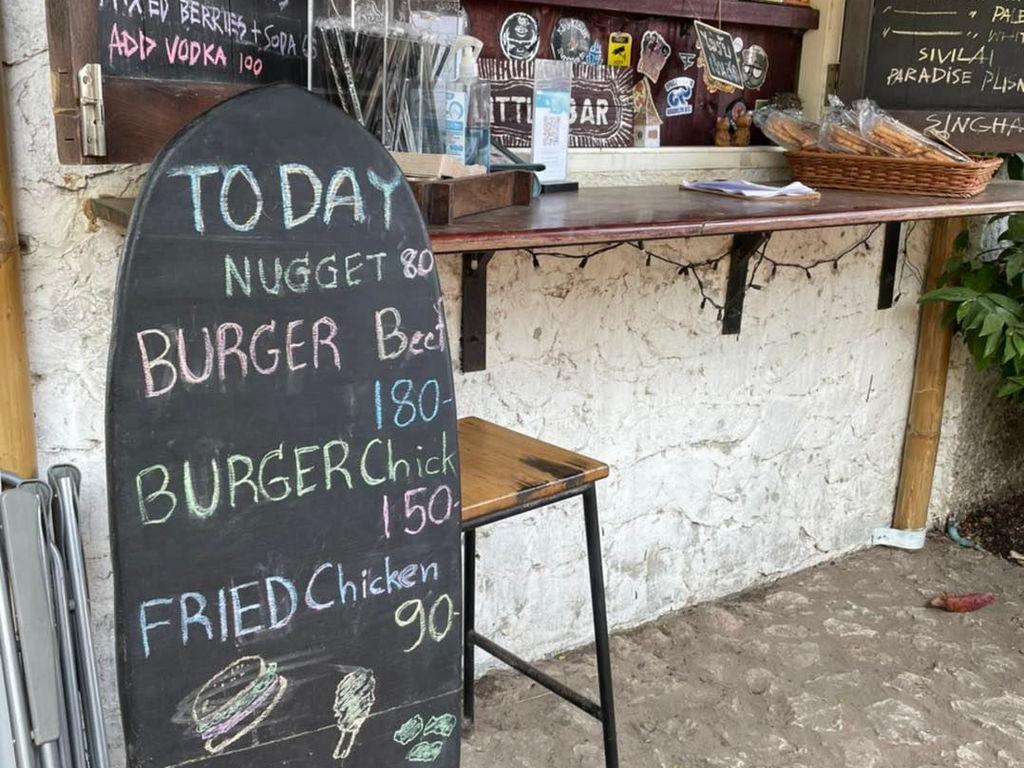 MIXED BERRIES + SODA
ADD VODKA 100
TODAY
NUGGET 80
BURGER Beef
180-
BURGER Chick
150-
FRIED Chicken
90-
BAR
SIVILAI
PARADISE
SINGHA